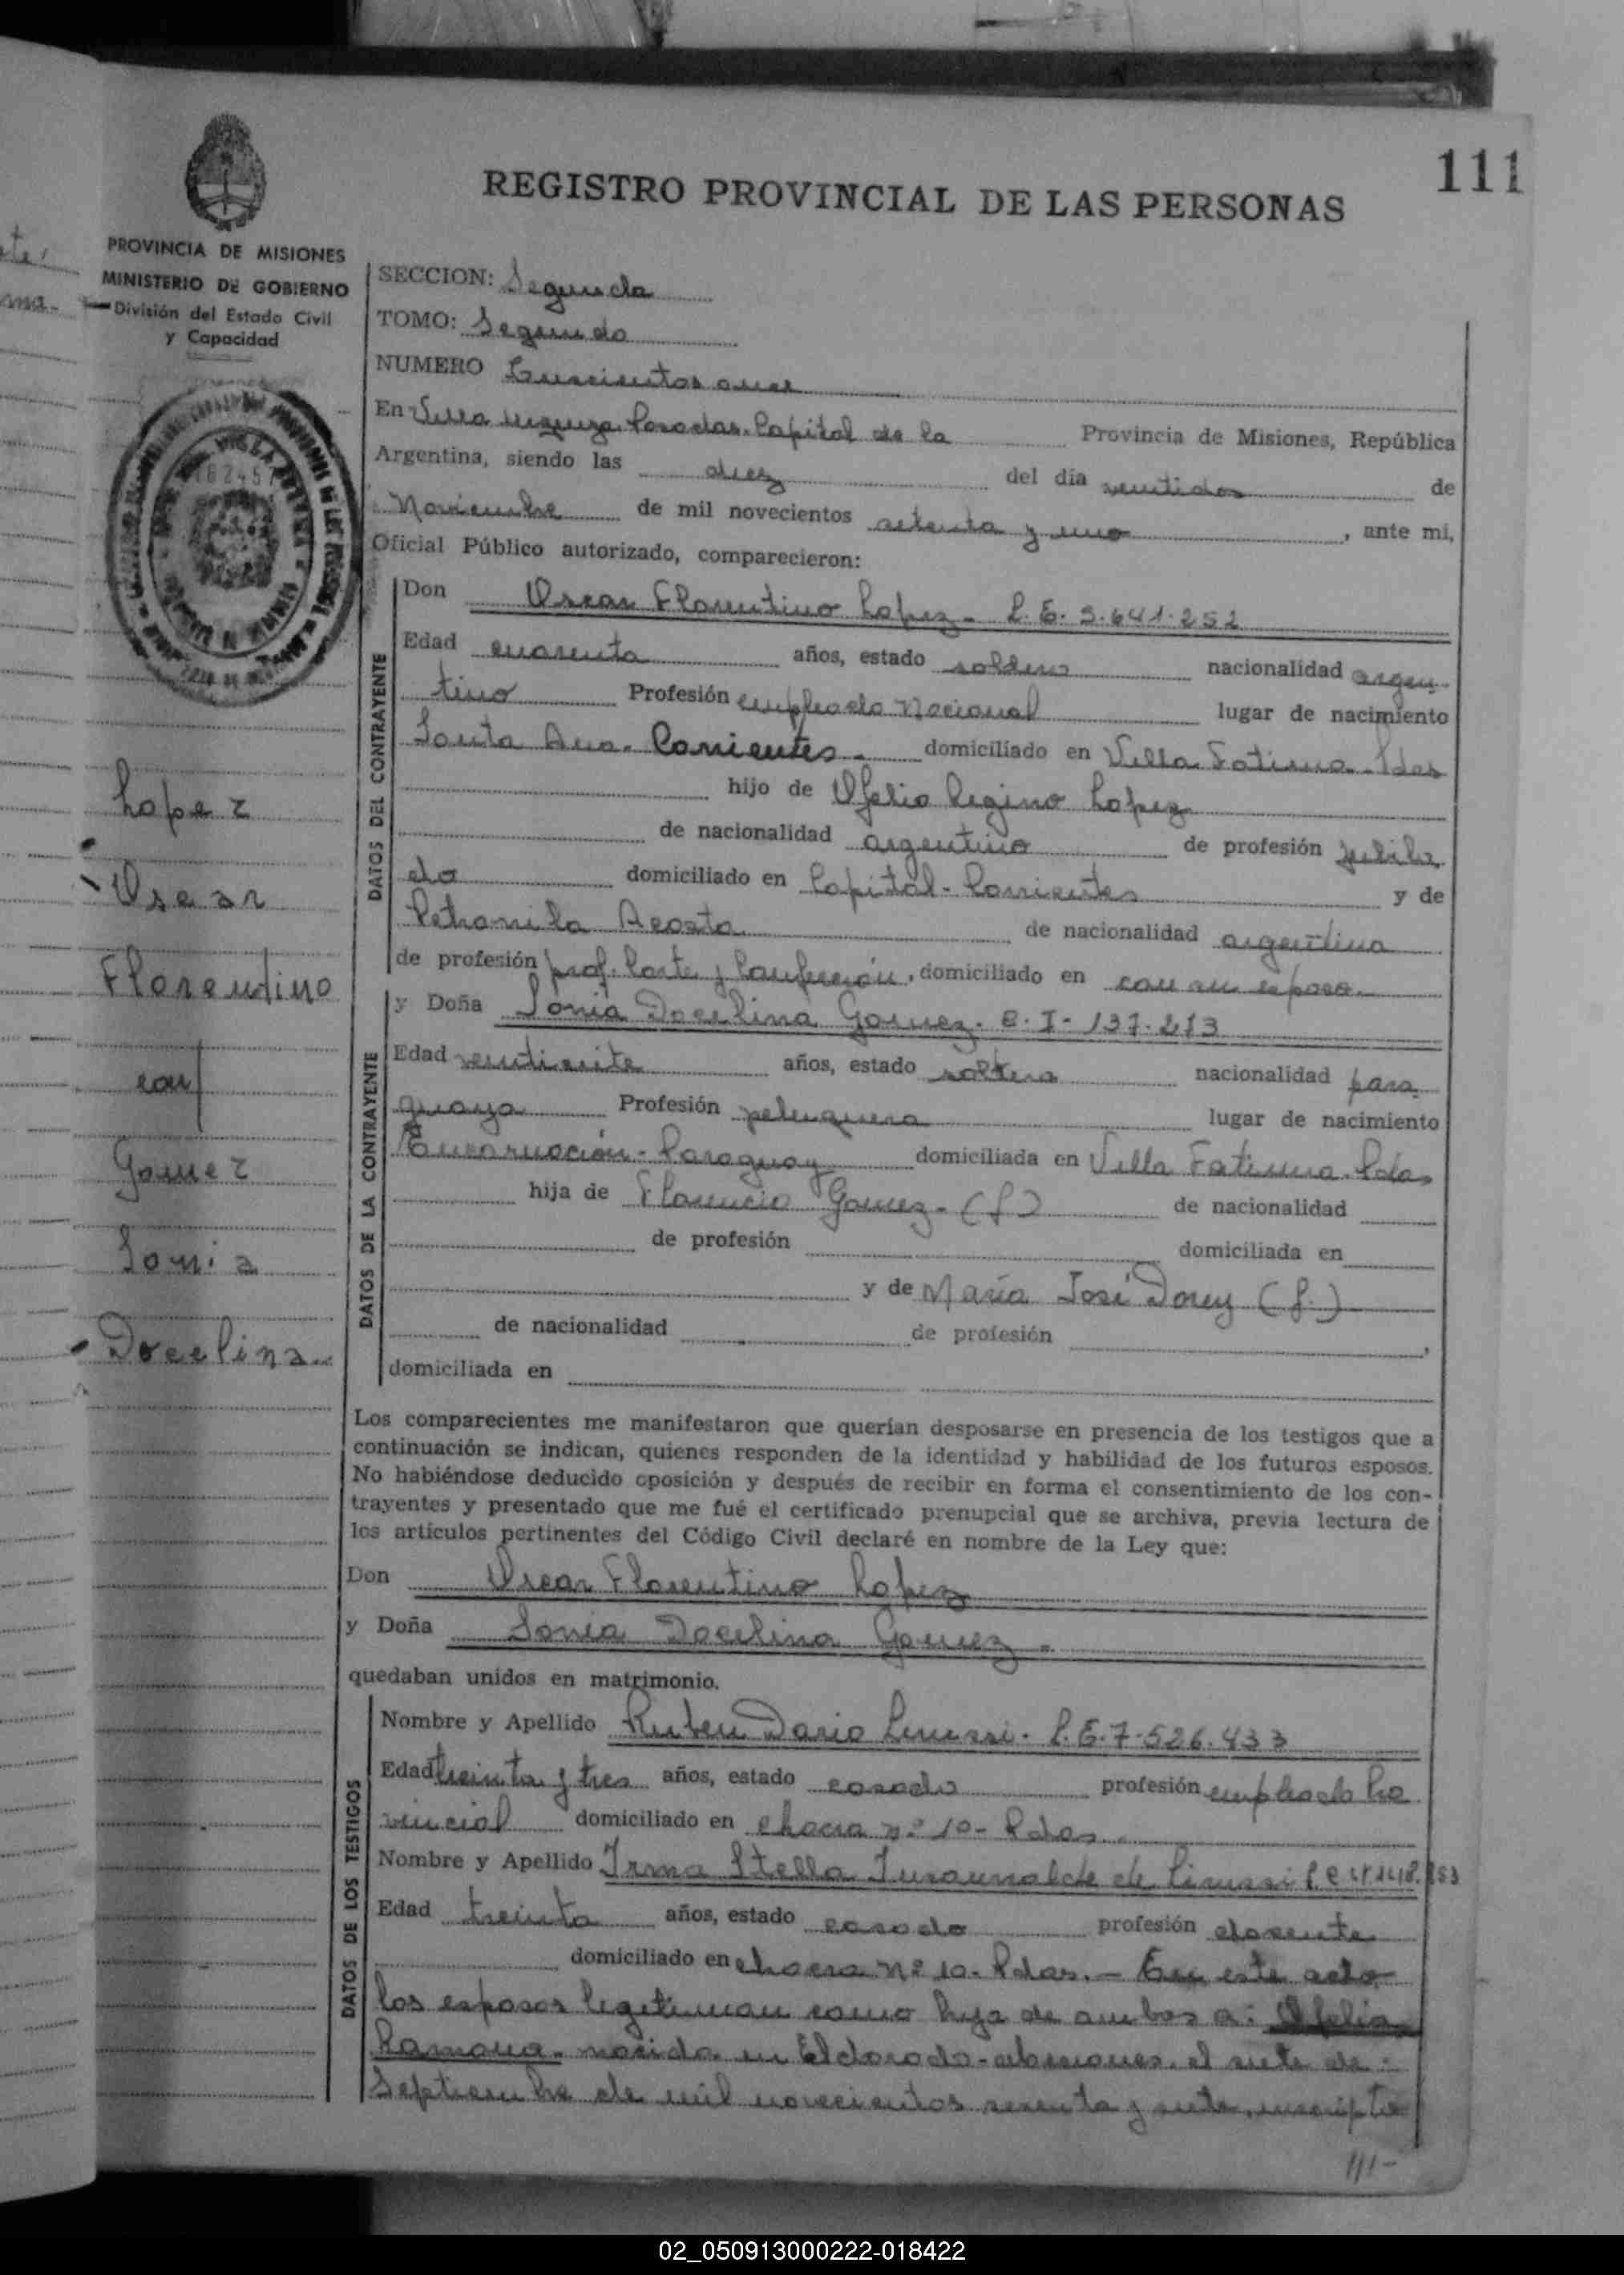 111
REGISTRO PROVINCIAL DE LAS PERSONAS
PROVINCIA DE MISIONES
MINISTERIO DE GOBIERNO
División del Estado Civil
y Capacidad
SECCION: Segunda
TOMO: Segundo
NUMERO
En Villa Urquiza. Posadas. Capital de la Provincia de Misiones, República
Argentina, siendo las diez del día veintidos de
Noviembre de mil novecientos setenta y uno, ante mi,
Oficial Público autorizado, comparecieron:
DATOS DEL CONTRAYENTE
Don Oscar Florentino Lopez - L. E. 5.641.252
Edad cuarenta años, estado soltero nacionalidad argen-
tino Profesión empleado Nacional lugar de nacimiento
Santa Ana. Corrientes. domiciliado en Villa Fatima. Pdas
hijo de Ofelio Regino Lopez
de nacionalidad argentino de profesión jubila
do domiciliado en Capital - Corrientes y de
Petronila Acosta de nacionalidad argentina
de profesión prof. Corte y Confección, domiciliado en con su esposo.
y Doña Sonia Docelina Gomez. C. I - 137.213
DATOS DE LA CONTRAYENTE
Edad años, estado soltera nacionalidad para
guaya Profesión peluquera lugar de nacimiento
Encarnación - Paraguay domiciliada en Villa Fatima. Pdas
hija de Florencio Gomez - (f) de nacionalidad
de profesión domiciliada en
y de Maria José Dorey (f.)
de nacionalidad de profesión ,
domiciliada en
Los comparecientes me manifestaron que querían desposarse en presencia de los testigos que a
continuación se indican, quienes responden de la identidad y habilidad de los futuros esposos.
No habiéndose deducido oposición y después de recibir en forma el consentimiento de los con-
trayentes y presentado que me fué el certificado prenupcial que se archiva, previa lectura de
los artículos pertinentes del Código Civil declaré en nombre de la Ley que:
Don Oscar Florentino Lopez
y Doña Sonia Docelina Gomez -
quedaban unidos en matrimonio.
DATOS DE LOS TESTIGOS
Nombre y Apellido Ruben Dario - L. E. 7.526.433
Edad treinta y tres años, estado casado profesión empleado Pro
vincial domiciliado en chacra nº 10 - Pdas.
Nombre y Apellido Irma Stella de
Edad treinta años, estado casado profesión docente
domiciliado en chacra Nº 10. Pdas. - En este acto
los esposos legitiman como hija de ambos a: Ofelia
Ramona. nacida en Eldorado - Misiones. el siete de
Septiembre de mil novecientos sesenta y siete, inscripta
111-
Lopez
Oscar
Florentino
con
Gomez
Sonia
Docelina
02_050913000222-018422